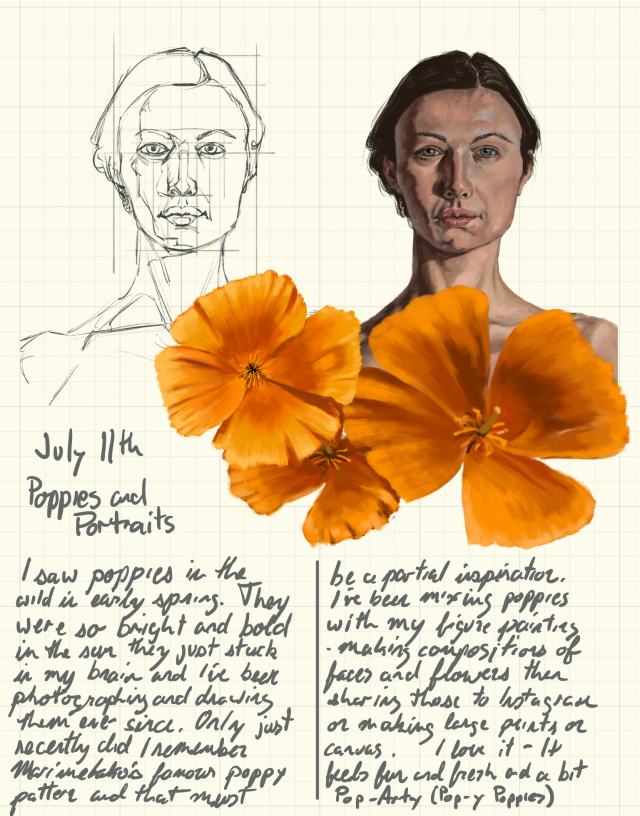 July 11th
Poppies and
Portraits
I saw poppies in the
wild in early spring. They
were so bright and bold
in the sun they just stuck
in my brain and I've been
photographing and drawing
them ever since. Only just
recently did I remember
Marimekko's famous poppy
pattern and that must
be a partial inspiration.
I've been mixing poppies
with my figure painting
- making compositions of
faces and flowers then
sharing those to Instagram
or making large prints on
canvas. I love it - It
feels fun and fresh and a bit
Pop-Arty (Pop-y Poppies)